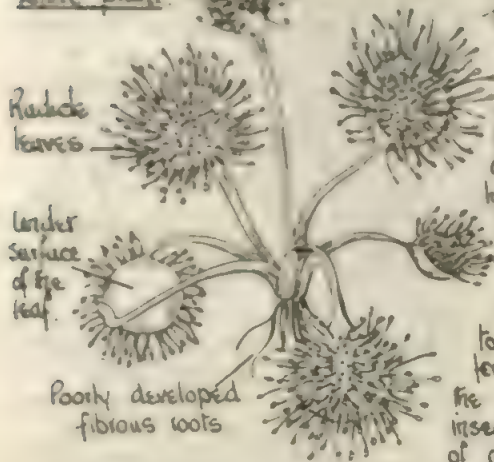 Radicle
leaves
Under
surface
of the
leaf.
Poorly developed
fibrous roots
to
the
inse
of